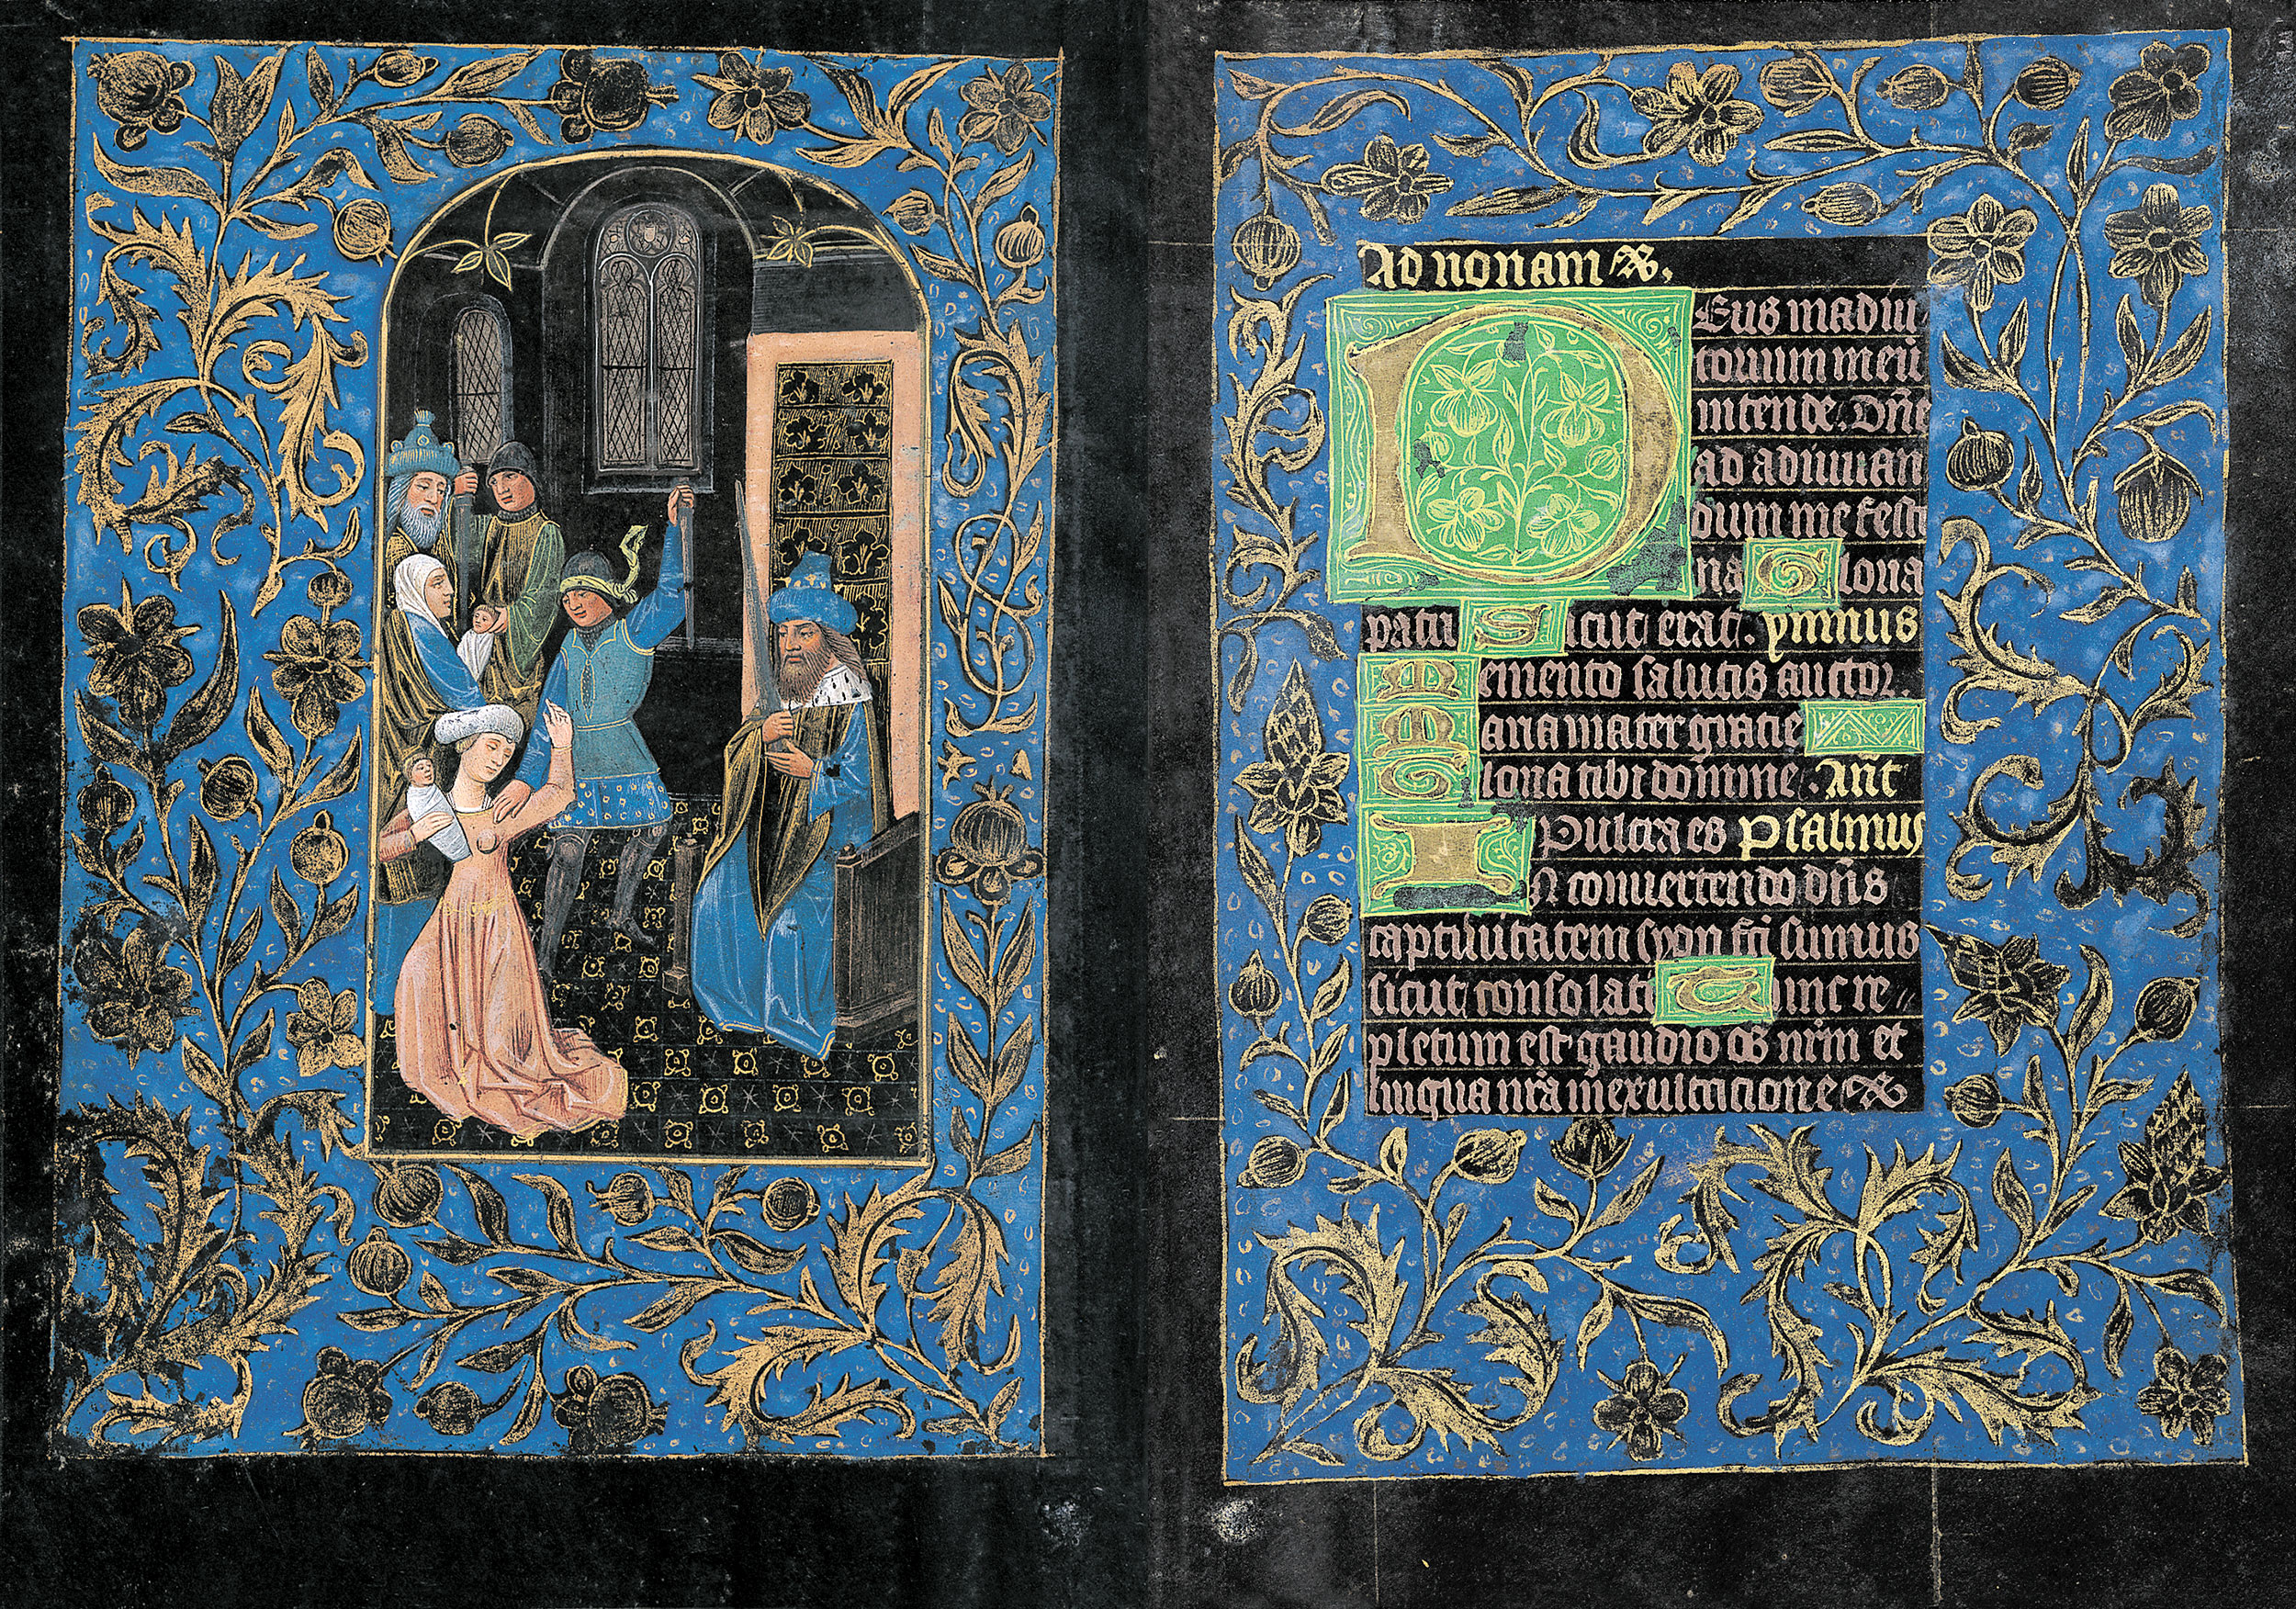 Ad nonam
Deus in adiu
torium meū
intende. Dn̄e
ad adiuuan
dum me festi
na Gloria
patri Sicut erat. ymnus
Memento salutis auctor.
Maria mater gratie
Gloria tibi domine. Ant̄
Pulcra es Psalmus
In conuertendo dn̄s
captiuitatem syon fc̄i sumus
sicut consolati Tunc re
pletum est gaudio os nr̄m et
lingua nr̄a in exultacione